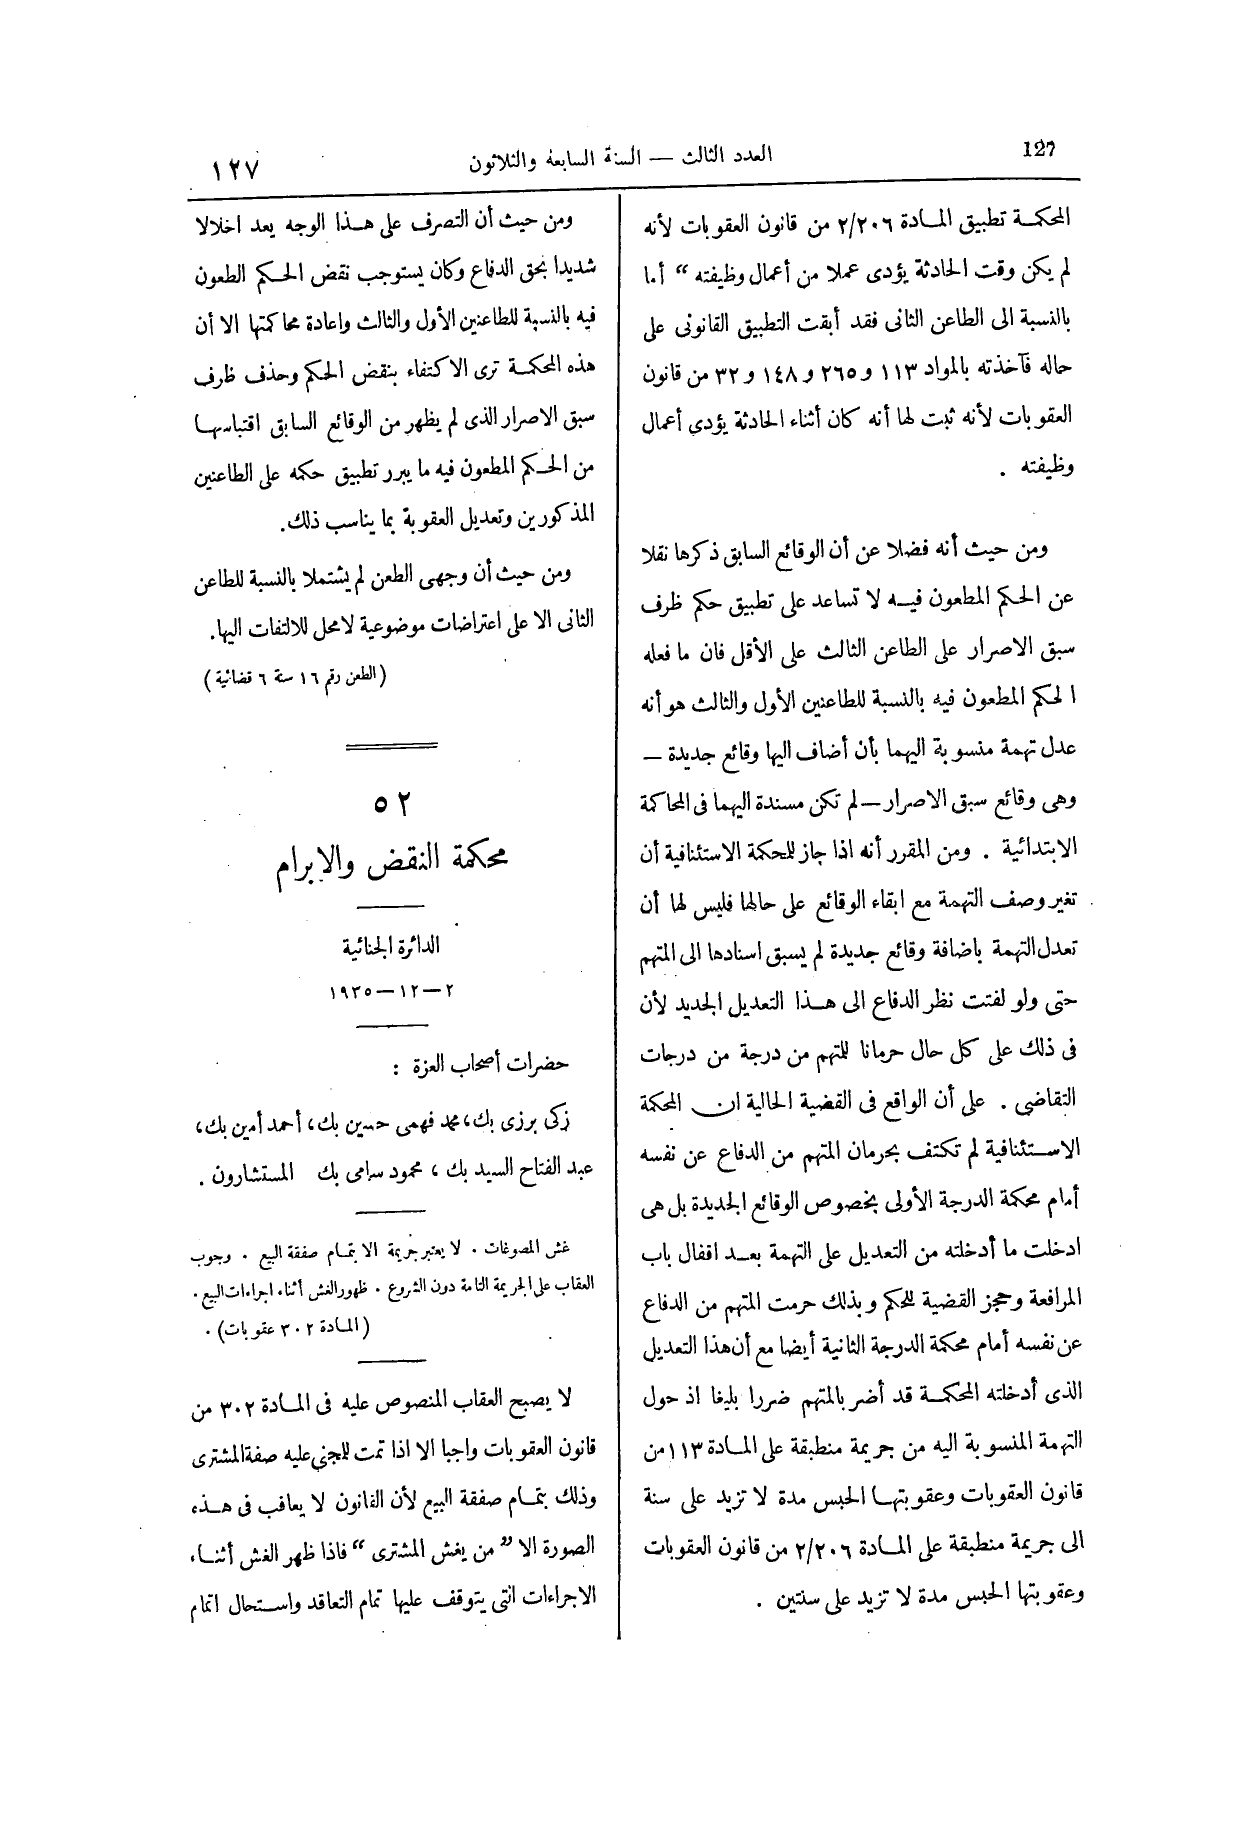 127
العدد الثالث — السنة السابعة والثلاثون
١٢٧
المحكمة تطبيق المادة ٢/٢٠٦ من قانون العقوبات لأنه
لم يكن وقت الحادثة يؤدى عملا من أعمال وظيفته “ أما
بالنسبة الى الطاعن الثانى فقد أبقت التطبيق القانونى على
حاله فآخذته بالمواد ١١٣ و ٢٦٥ و ١٤٨ و ٣٢ من قانون
العقوبات لأنه ثبت لها أنه كان أثناء الحادثة يؤدى أعمال
وظيفته .
ومن حيث أنه فضلا عن أن الوقائع السابق ذكرها نقلا
عن الحكم المطعون فيه لا تساعد على تطبيق حكم ظرف
سبق الاصرار على الطاعن الثالث على الأقل فان ما فعله
الحكم المطعون فيه بالنسبة للطاعنين الأول والثالث هو أنه
عدل تهمة منسوبة اليهما بأن أضاف اليها وقائع جديدة —
وهى وقائع سبق الاصرار — لم تكن مسندة اليهما فى المحاكمة
الابتدائية . ومن المقرر أنه اذا جاز للحكمة الاستئنافية أن
تغير وصف التهمة مع ابقاء الوقائع على حالها فليس لها أن
تعدل التهمة باضافة وقائع جديدة لم يسبق اسنادها الى المتهم
حتى ولو لفتت نظر الدفاع الى هذا التعديل الجديد لأن
فى ذلك على كل حال حرمانا للمتهم من درجة من درجات
التقاضى . على أن الواقع فى القضية الحالية ان المحكمة
الاستئنافية لم تكتف بحرمان المتهم من الدفاع عن نفسه
أمام محكمة الدرجة الأولى بخصوص الوقائع الجديدة بل هى
ادخلت ما أدخلته من التعديل على التهمة بعد اقفال باب
المرافعة وحجز القضية للحكم وبذلك حرمت المتهم من الدفاع
عن نفسه أمام محكمة الدرجة الثانية أيضا مع أن هذا التعديل
الذى أدخلته المحكمة قد أضر بالمتهم ضررا بليغا اذ حول
التهمة المنسوبة اليه من جريمة منطبقة على المادة ١١٣ من
قانون العقوبات وعقوبتها الحبس مدة لا تزيد على سنة
الى جريمة منطبقة على المادة ٢/٢٠٦ من قانون العقوبات
وعقوبتها الحبس مدة لا تزيد على سنتين .
ومن حيث أن التصرف على هذا الوجه يعد اخلالا
شديدا بحق الدفاع وكان يستوجب نقض الحكم الطعون
فيه بالنسبة للطاعنين الأول والثالث واعادة محاكمتها الا أن
هذه المحكمة ترى الاكتفاء بنقض الحكم وحذف ظرف
سبق الاصرار الذى لم يظهر من الوقائع السابق اقتباسها
من الحكم المطعون فيه ما يبرر تطبيق حكمه على الطاعنين
المذكورين وتعديل العقوبة بما يناسب ذلك.
ومن حيث أن وجهى الطعن لم يشتملا بالنسبة للطاعن
الثانى الا على اعتراضات موضوعية لا محل للالتفات اليها.
(الطعن رقم ١٦ سنة ٦ قضائية)
٥٢
محكمة النقض والابرام
الدائرة الجنائية
٢—١٢—١٩٣٥
حضرات أصحاب العزة :
زكى برزى بك، محمد فهمى حسين بك، أحمد أمين بك،
عبد الفتاح السيد بك ، محمود سامى بك المستشارون .
غش المصوغات . لا يعتبر جريمة الا بتمام صفقة البيع . وجوب
العقاب على الجريمة التامة دون الشروع . ظهور الغش أثناء اجراءات البيع .
(المادة ٣٠٢ عقوبات) .
لا يصبح العقاب المنصوص عليه فى المادة ٣٠٢ من
قانون العقوبات واجبا الا اذا تمت للمجنى عليه صفة المشترى
وذلك بتمام صفقة البيع لأن القانون لا يعاقب فى هذه
الصورة الا ” من يغش المشترى “ فاذا ظهر الغش أثناء
الاجراءات التى يتوقف عليها تمام التعاقد واستحال اتمام